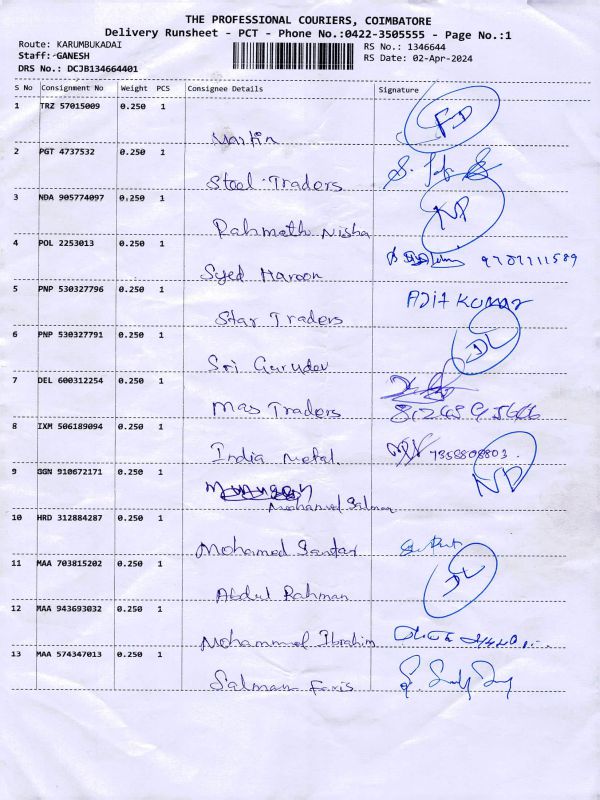 THE PROFESSIONAL COURIERS, COIMBATORE
Delivery Runsheet - PCT - Phone No.:0422-3505555 - Page No.:1
Route: KARUMBUKADAI RS No.: 1346644
Staff: GANESH RS Date: 02-Apr-2024
DRS No.: DCJB134664401
S No Consignment No Weight PCS Consignee Details Signature
1 TRZ 57015009 0.250 1
Martin
2 PGT 4737532 0.250 1
Steel Traders
3 NDA 905774097 0.250 1
Rahmath Nisha
4 POL 2253013 0.250 1
Syed Haroon
5 PNP 530327796 0.250 1 AJIT KUMAR
Star Traders
6 PNP 530327791 0.250 1 DL
Sri Gurudev
7 DEL 600312254 0.250 1
Mas Traders
8 IXM 506189094 0.250 1
India Metal
9 GGN 910672171 0.250 1 ND
Mohamed Salman
10 HRD 312884287 0.250 1
Mohamed
11 MAA 703815202 0.250 1 DL
Abdul Rahman
12 MAA 943693032 0.250 1
Mohammed Ibrahim
13 MAA 574347013 0.250 1
Salman Faris